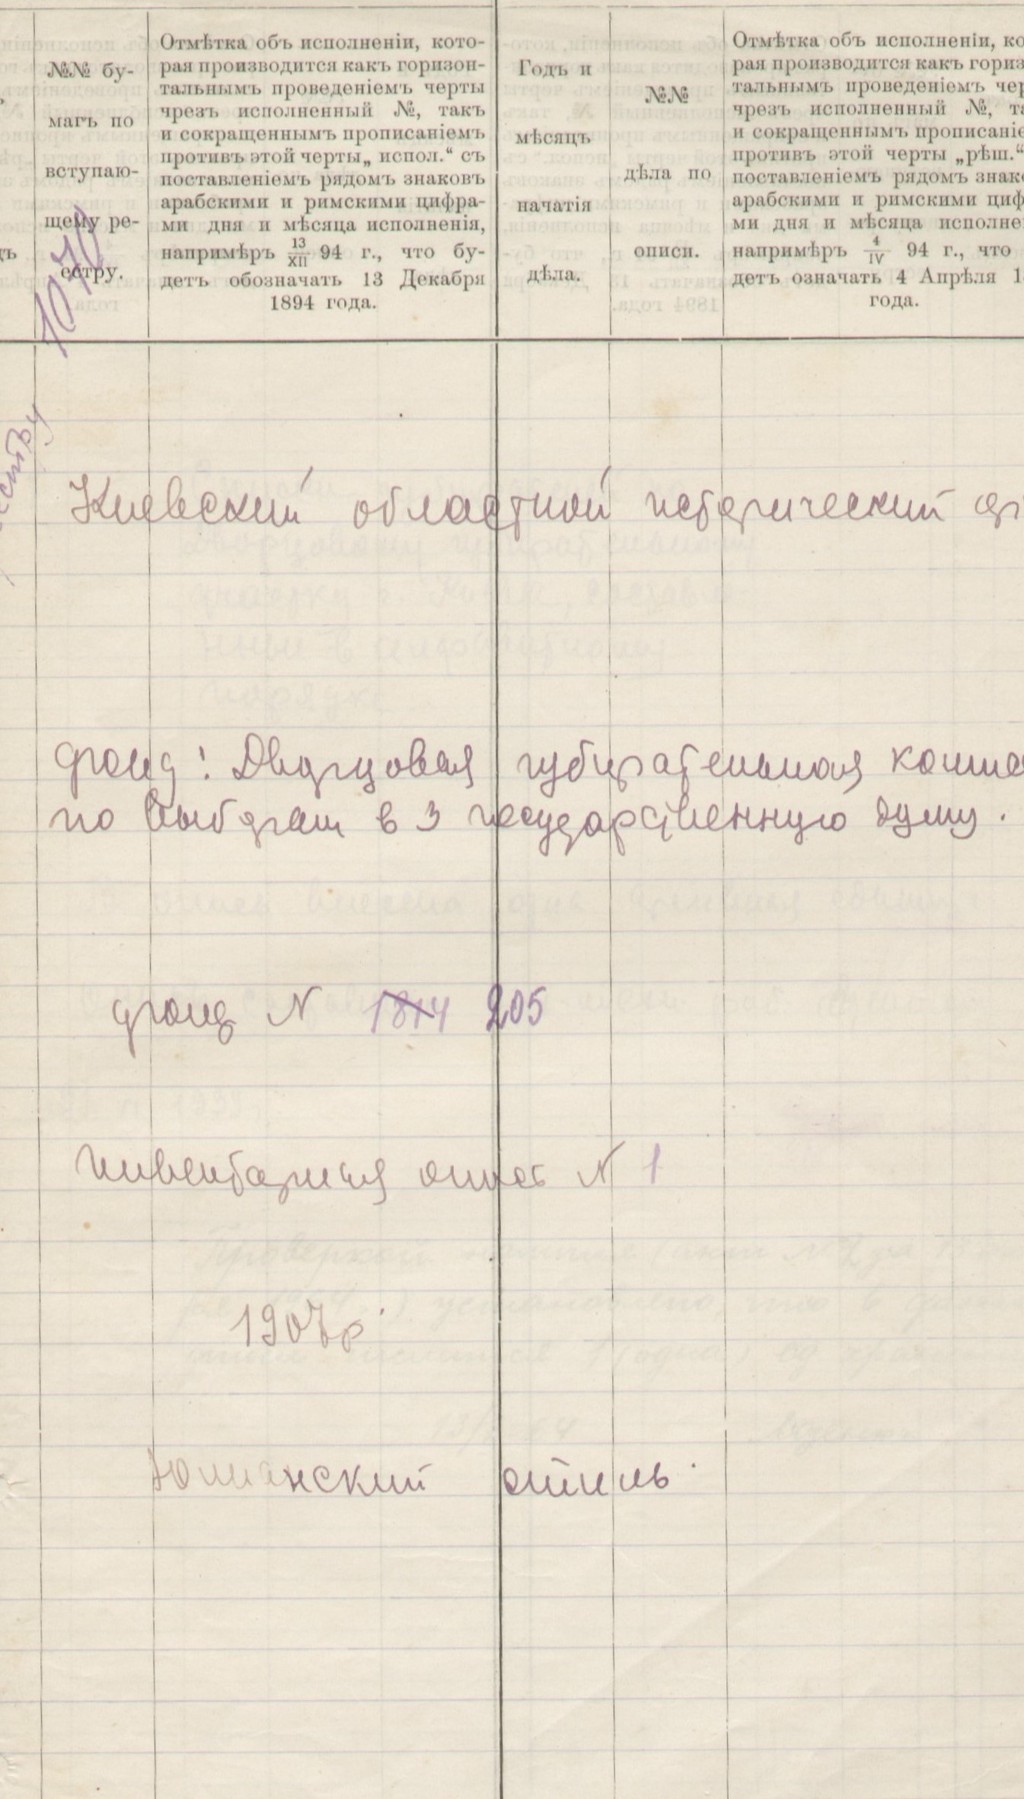 №№ бу-
магъ по
вступаю-
щему ре-
естру.
Отмѣтка объ исполненіи, кото-
рая производится какъ горизон-
тальнымъ проведеніемъ черты
чрезъ исполненный №, такъ
и сокращеннымъ прописаніемъ
противъ этой черты „ испол.“ съ
поставленіемъ рядомъ знаковъ
арабскими и римскими цифра-
ми дня и мѣсяца исполненія,
напримѣръ 13/XII 94 г., что бу-
детъ обозначать 13 Декабря
1894 года.
Годъ и
мѣсяцъ
начатія
дѣла.
№№
дѣла по
описи.
Отмѣтка объ исполненіи, ко
рая производится какъ гориз
тальнымъ проведеніемъ чер
чрезъ исполненный №, та
и сокращеннымъ прописаніе
противъ этой черты „рѣш.“
поставленіемъ рядомъ знако
арабскими и римскими циф
ми дня и мѣсяца исполне
напримѣръ 4/IV 94 г., что
детъ означать 4 Апрѣля 1
года.
1070
Киевский областной исторический ар
фонд: Дворцовая избирательная комис
по выборам в 3 государственную думу.
фонд N 1814 205
Инвентарная опись N 1
1907 г.
Юлианский стиль.